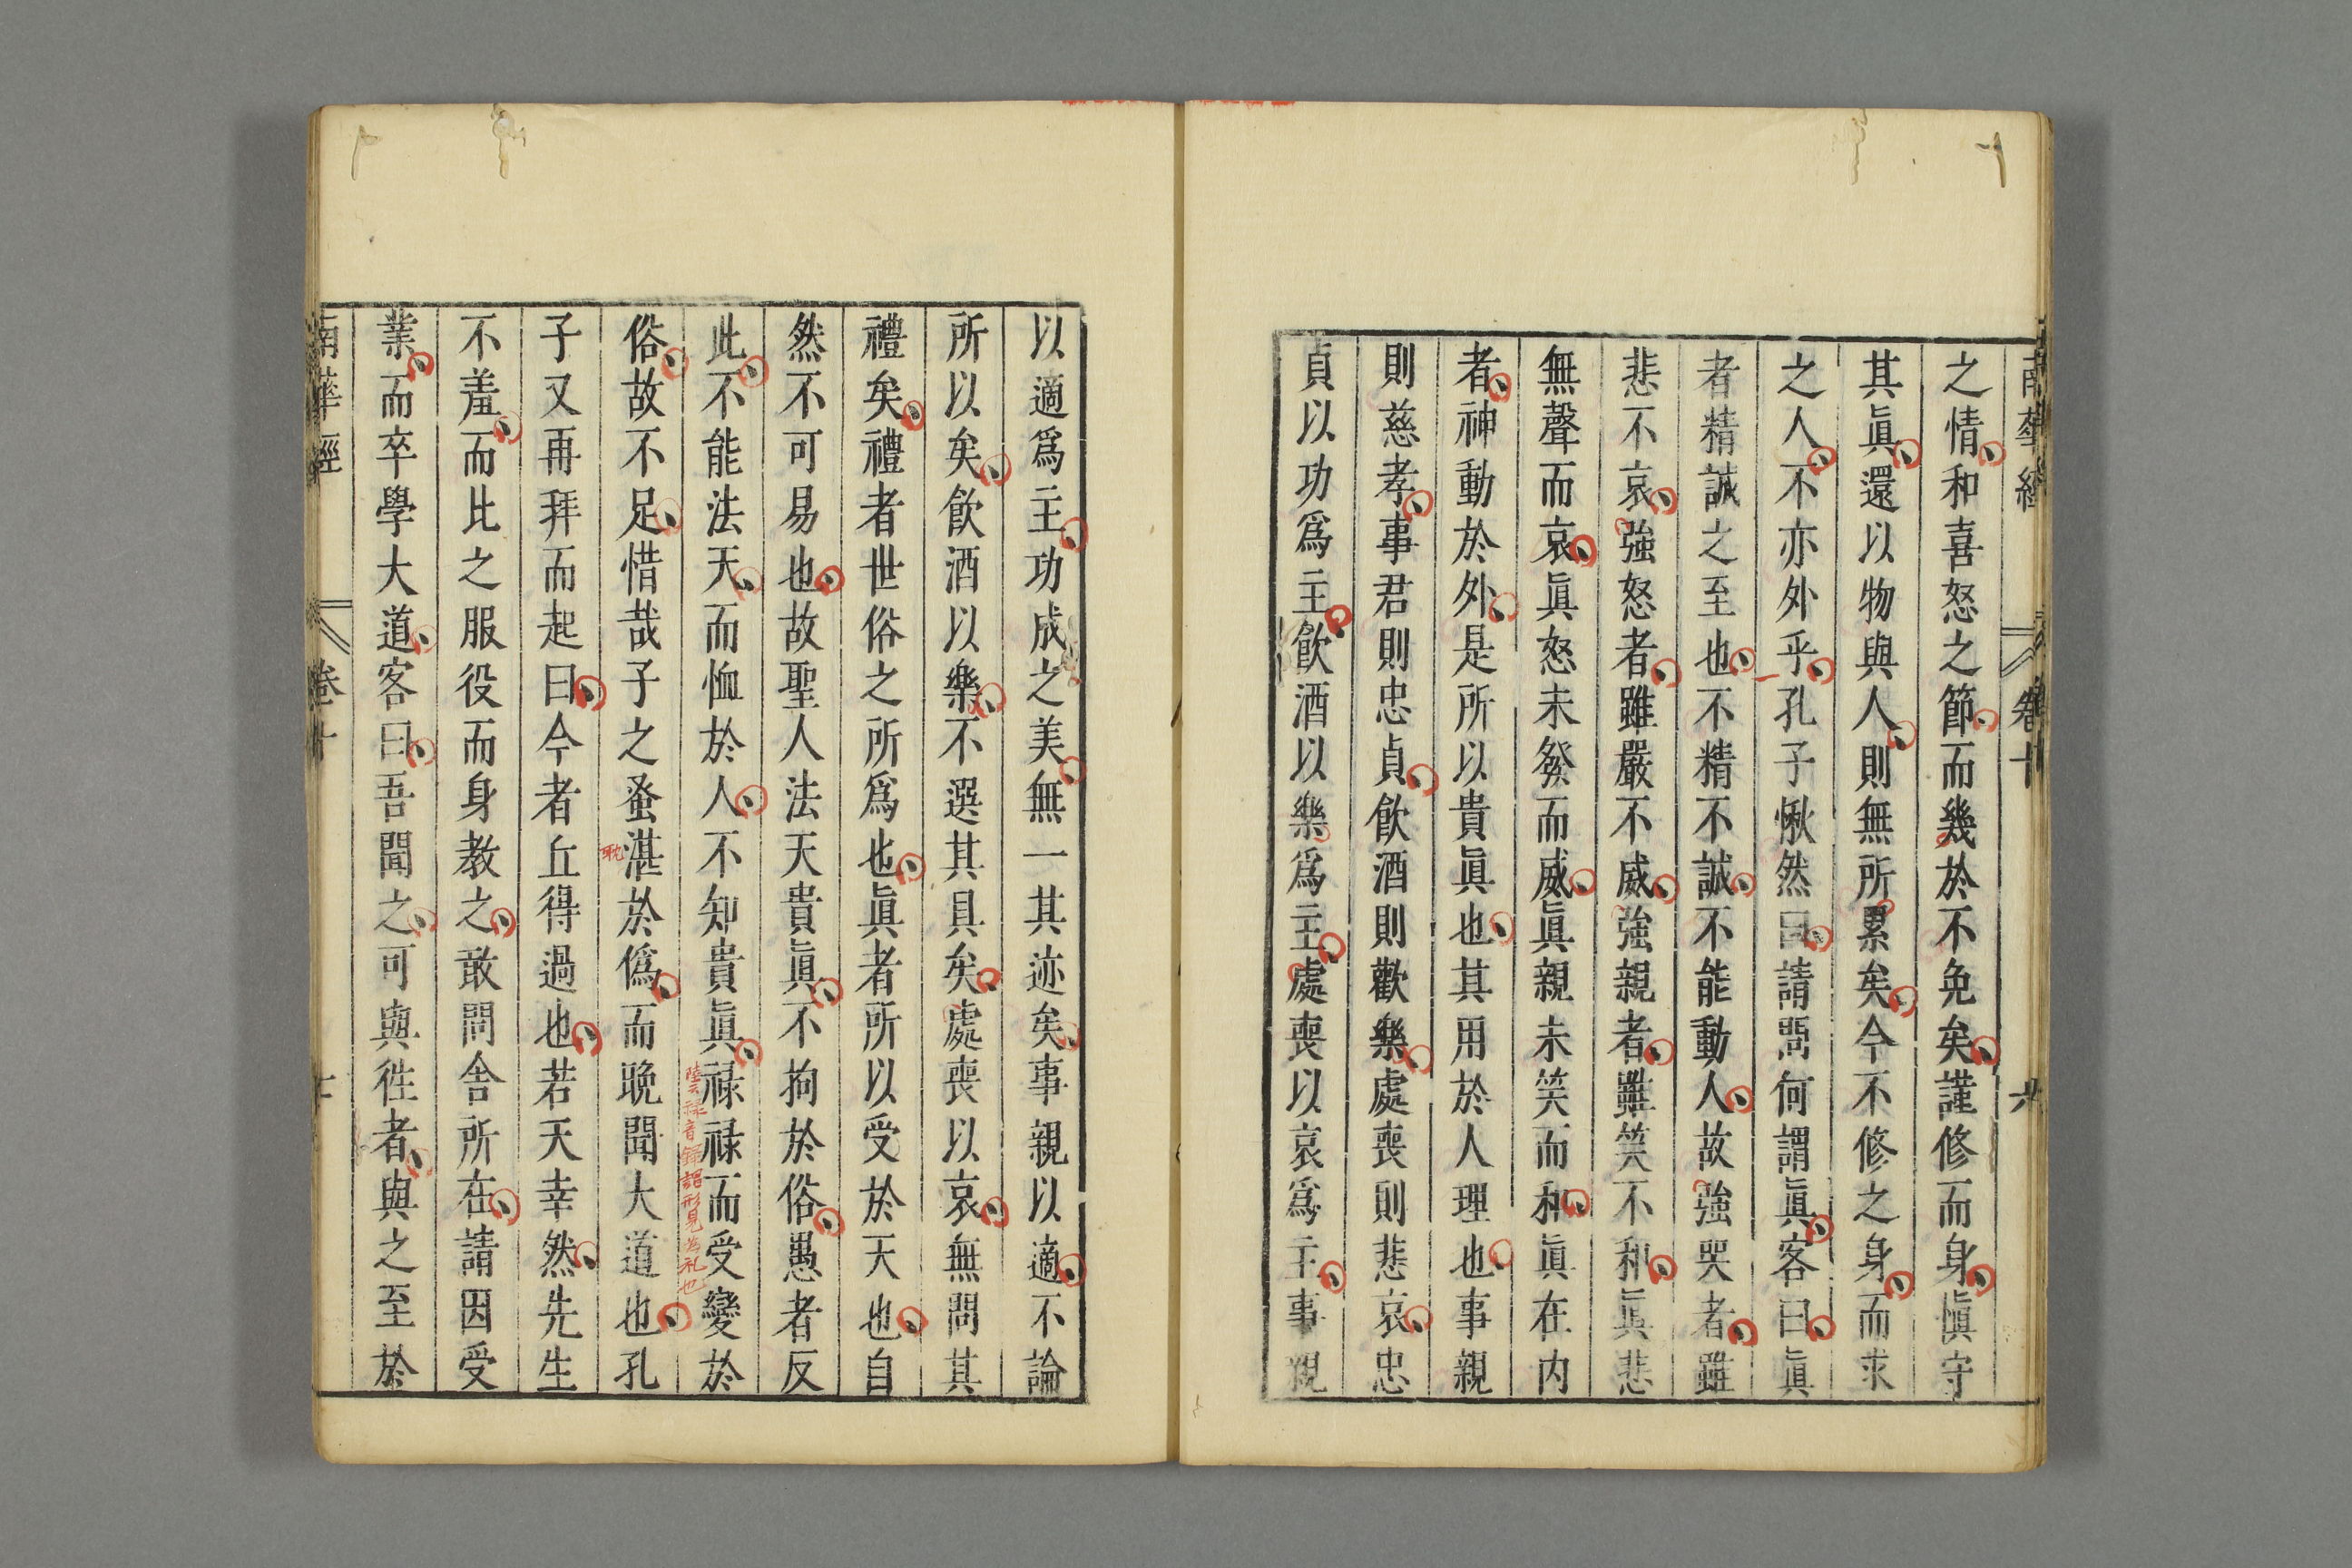 南華經 卷十 六
之情和喜怒之節而幾於不免矣謹修而身慎守
其眞還以物與人則無所累矣今不修之身而求
之人不亦外乎孔子愀然曰請問何謂眞客曰眞
者精誠之至也不精不誠不能動人故強哭者雖
悲不哀強怒者雖嚴不威強親者雖笑不和眞悲
無聲而哀眞怒未發而威眞親未笑而和眞在內
者神動於外是所以貴眞也其用於人理也事親
則慈孝事君則忠貞飲酒則歡樂處喪則悲哀忠
貞以功爲主飲酒以樂爲主處喪以哀爲主事親
以適爲主功成之美無一其迹矣事親以適不論
所以矣飲酒以樂不選其具矣處喪以哀無問其
禮矣禮者世俗之所爲也眞者所以受於天也自
然不可易也故聖人法天貴眞不拘於俗愚者反
此不能法天而恤於人不知貴眞祿祿而受變於
陸云祿音錄謂形見爲礼也
俗故不足惜哉子之蚤湛於僞而晚聞大道也孔
耽
子又再拜而起曰今者丘得過也若天幸然先生
不羞而比之服役而身教之敢問舍所在請因受
業而卒學大道客曰吾聞之可與往者與之至於
南華經 卷十